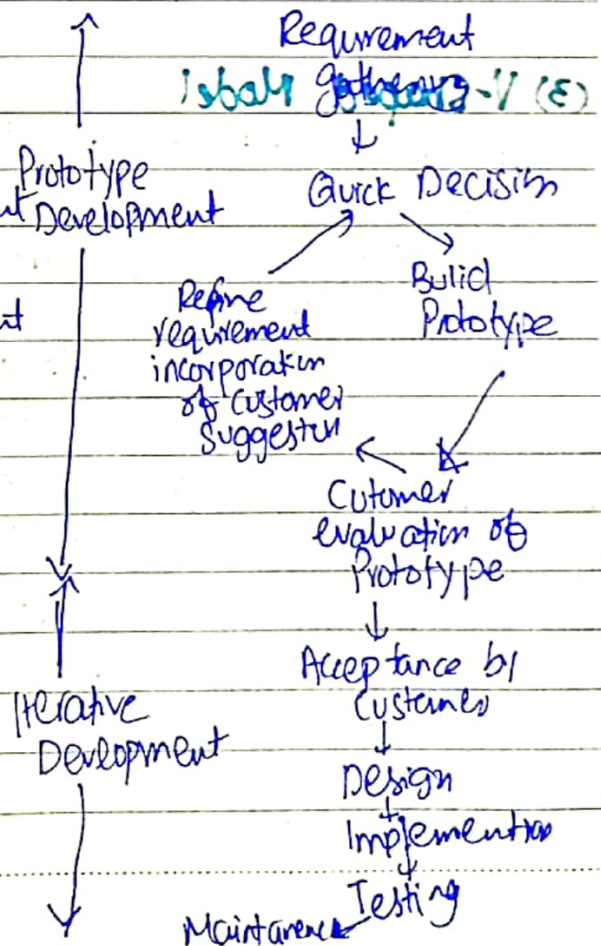 Requirement
gathering
Prototype
Development
Quick Decision
Bulid
Prototype
Refine
requirement
incorporation
of customer
suggestion
Cutomer
evaluation of
Prototype
Acceptance by
customer
Iterative
Development
Design
Implemention
Testing
Maintanence